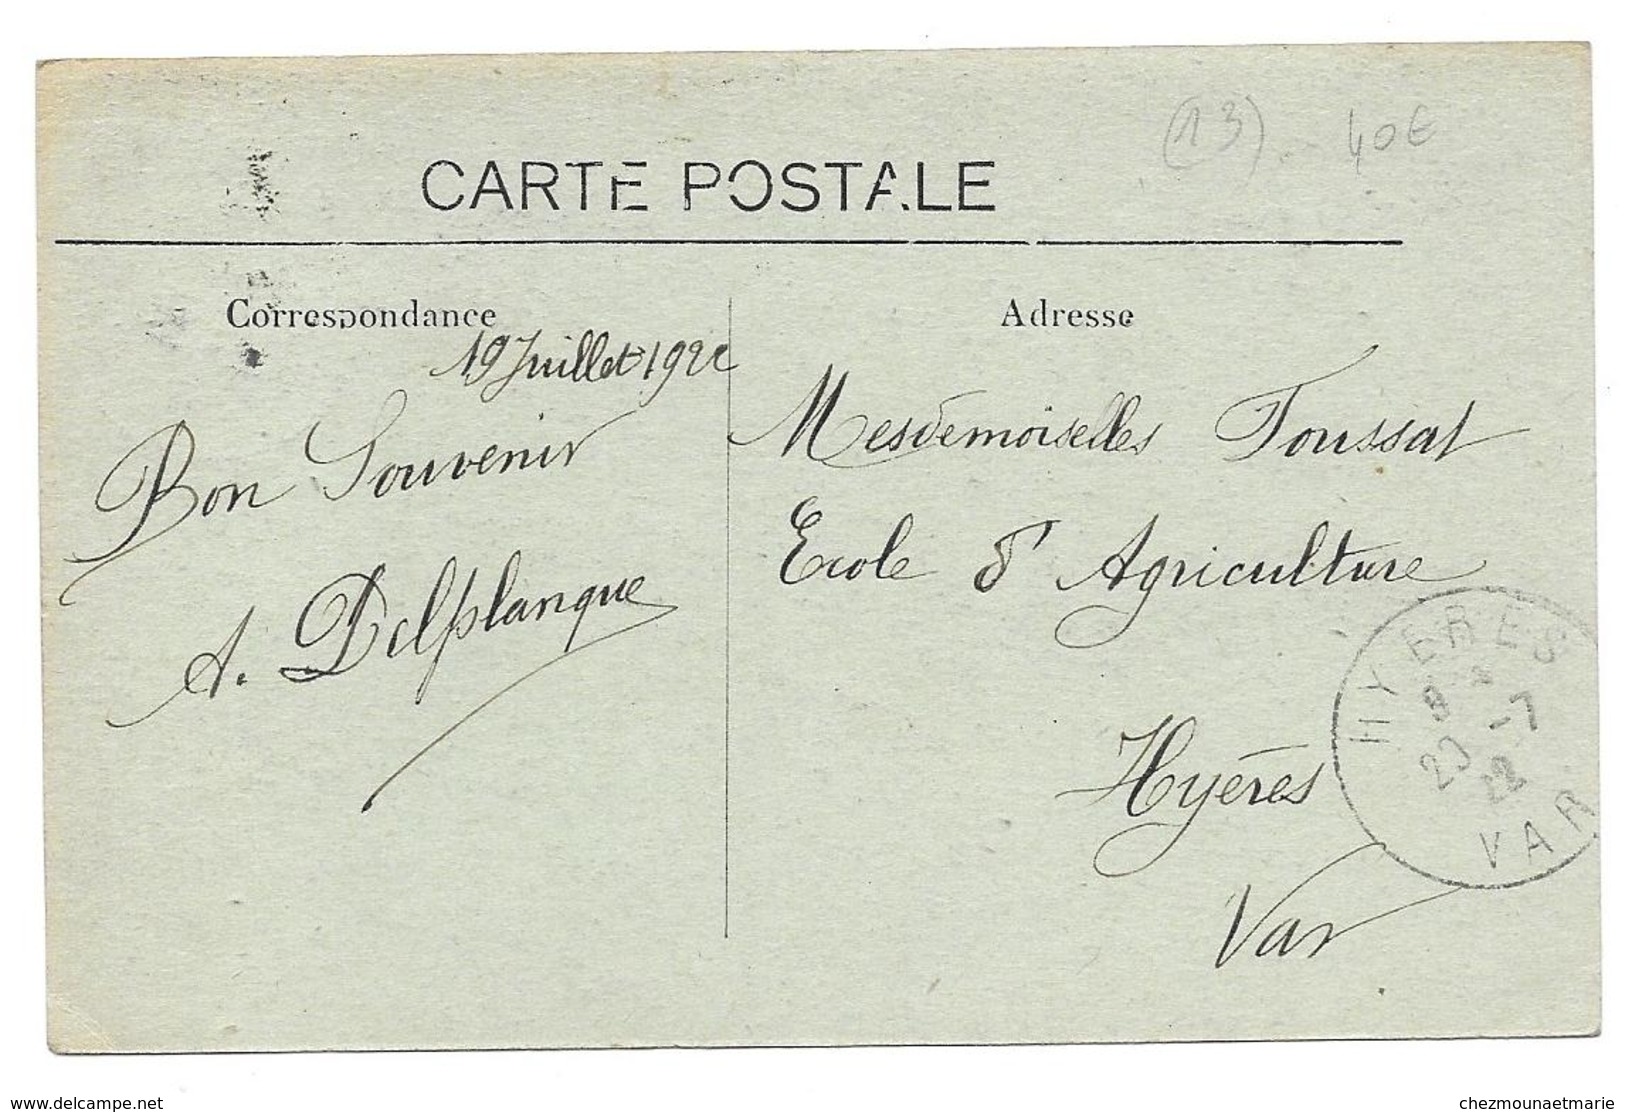 (13) 40€
CARTE POSTALE
Correspondance
19 Juillet 1922
Bon Souvenir
A. Delplanque
Adresse
Mesdemoiselles Toussat
Ecole d'Agriculture
Hyères
Var
HYERES
8
20 -7
22
VAR
www.delcampe.net
chezmounaetmarie